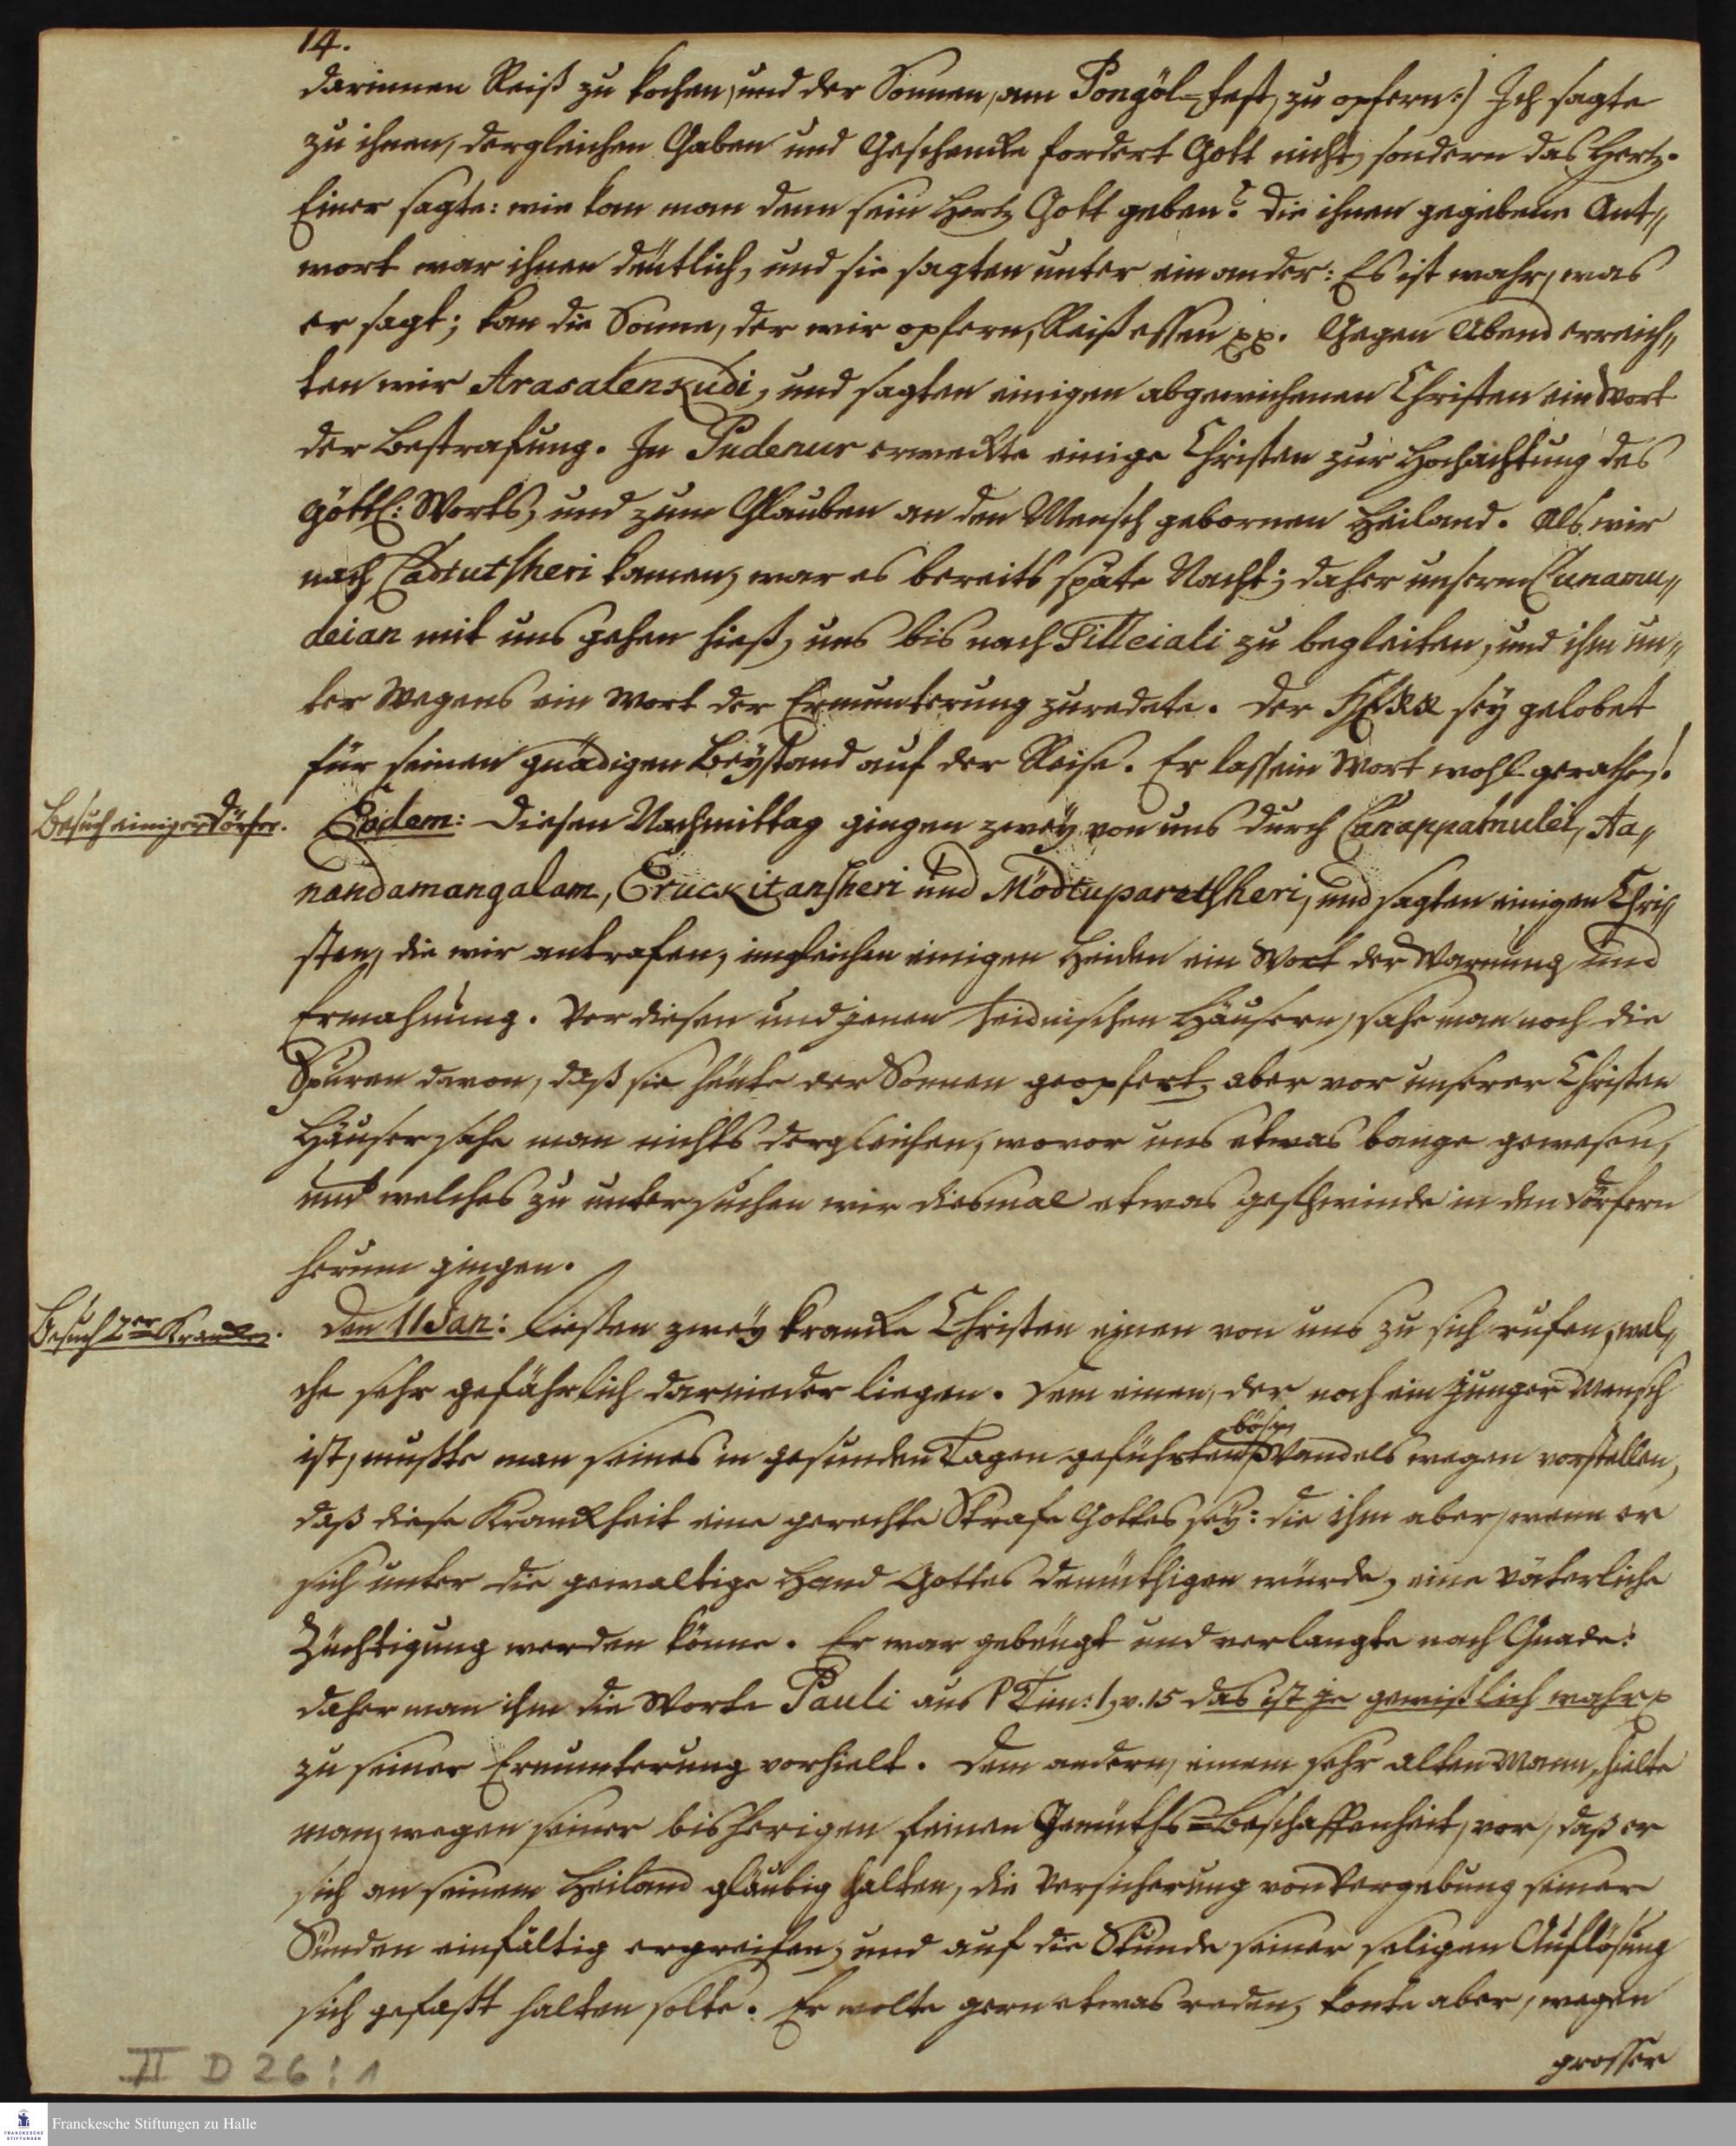 14.
darinnen Reiß zu kochen, und der Sonnen, am Pongöl-fest, zu opfern:) Ich sagte
zu ihnen, dergleichen Gaben und Geschencke fordert Gott nicht, sondern das Hertz.
Einer sagte: wie kan man denn sein Hertz Gott geben? die ihnen gegebene Ant„
wort war ihnen deutlich, und sie sagten unter einander: Es ist wahr, was
er sagt; kan die Sonne, der wir opfern, Reiß essen pp. Gegen Abend erreich„
ten wir Arasalenkudi, und sagten einigen abgewichenen Christen ein Wort
der Bestrafung. In Pudenur erweckte einige Christen zur Hochachtung des
göttl: Worts, und zum Glauben an den Mensch gebornen Heiland. Als wir
nach Cadtutsheri kamen, war es bereits späte Nacht; daher unserm Cunamu„
deian mit uns gehen hieß, uns bis nach Tilleiali zu begleiten, und ihm un„
ter Wegens ein Wort der Ermunterung zuredete. Der HErr sey gelobet
für seinen gnädigen Beystand auf der Reise. Er lass sein Wort wohl gerathen!
Besuch einiger Dörfer.
Eodem: diesen Nachmittag gingen zwey von uns durch Carappamulei, Aa„
nandamangalam, Eruckitansheri und Mödtuparetsheri, und sagten einigen Chri„
sten, die wir antrafen, imgleichen einigen Heiden ein Wort der Warnung und
Ermahnung. Vor diesen und jenen heidnischen Häusern, sahe man noch die
Spuren davon, daß sie heute der Sonnen geopfert, aber vor unserer Christen
Häuser sahe man nichts dergleichen, wovor uns etwas bange gewesen,
und welches zu untersuchen wir diesmal etwas geschwinde in den Dörfern
herum gingen.
Besuch 2er Krancken.
Den 11 Jan: liessen zwey krancke Christen einen von uns zu sich rufen, wel„
che sehr gefährlich darnieder liegen. Dem einen, der noch ein junger Mensch
ist, mußte man seines in gesunden Tagen geführten bösen Wandels wegen vorstellen,
daß diese Kranckheit eine gerechte Strafe Gottes sey: die ihm aber, wenn er
sich unter die gewaltige Hand Gottes demüthigen würde, eine väterliche
Züchtigung werden könne. Er war gebeugt und verlangte nach Gnade:
daher man ihm die Worte Pauli aus 1 Tim: 1, v. 15 das ist je gewißlich wahr p
zu seiner Ermunterung vorhielt. Dem andern, einem sehr alten Mann, hielte
man, wegen seiner bisherigen feinen Gemüths-Beschaffenheit, vor, daß er
sich an seinem Heiland gläubig halten, die Versicherung von Vergebung seiner
Sünden einfältig ergreifen, und auf die Stunde seiner seligen Auflösung
sich gefasst halten solte. Er wolte gern etwas reden, konte aber, wegen
grosser
II D 26 : 1
Franckesche Stiftungen zu Halle